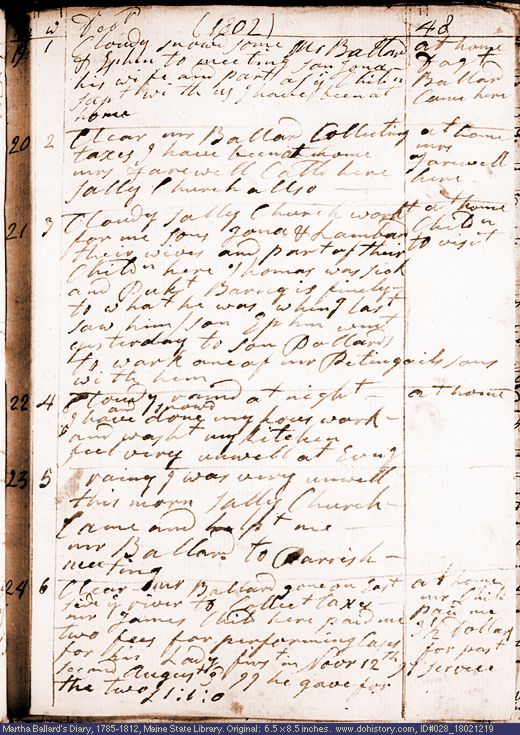 Decr (1802) 48
19 1 Cloudy snowd some Mr Ballard at home
& Ephm to meeting son Jona Dagt
his wife and part of is Childn Ballard
supt with us I have been at Came here
home
20 2 Clear mr Ballard Collecting at home
taxes I have been at home mrs
mrs Farewell Calld here Farwell
Sally Church allso — here
21 3 Cloudy Sally Church workt at home
for me Sons Jona & Lambard Childn
their wives and part of their to visit
Childn here Thomas was sick
and is finely
to what he was when I last
saw him son Ephm went
yesterday to son Pollards
to work one of mr Petingails sons
with him
22 4 Cloudy raind at night — at home
and snowd
I have done my hous work —
and washt my kitchen
feel very unwell at Evng
23 5 rainy I was very unwell
this morn Sally Church —
Came and helpt me —
mr Ballard to Parrish —
meeting
24 6 Clear mr Ballard gone on East at home
side of river to Collect taxes — mr Chib
mr James Chib here paid me paid me
two fees for performing Cases 3 1/2 Dollars
for his Lady first in Novr 12th for past
second August 9 99 he gave for service
the two £1:1:0
Martha Ballard's Diary, 1785-1812, Maine State Library. Original: 6.5 x 8.5 inches. www.dohistory.com, ID#028_18021219